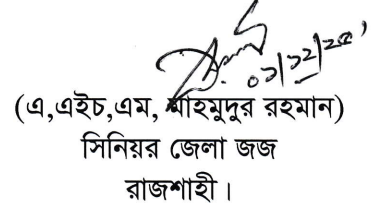 ০১/১২/২৫
(এ,এইচ,এম, মাহমুদুর রহমান)
সিনিয়র জেলা জজ
রাজশাহী।